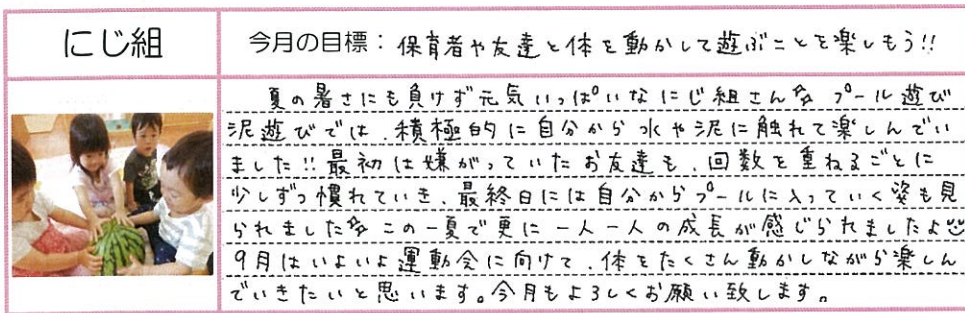 にじ組
今月の目標：保育者や友達と体を動かして遊ぶことを楽しもう!!
夏の暑さにも負けず元気いっぱいなにじ組さん プール遊び
泥遊びでは、積極的に自分から水や泥に触れて楽しんでい
ました!!最初は嫌がっていたお友達も、回数を重ねるごとに
少しずつ慣れていき、最終日には自分からプールに入っていく姿も見
られました この一夏で更に一人一人の成長が感じられましたよ
9月はいよいよ運動会に向けて、体をたくさん動かしながら楽しん
でいきたいと思います。今月もよろしくお願い致します。